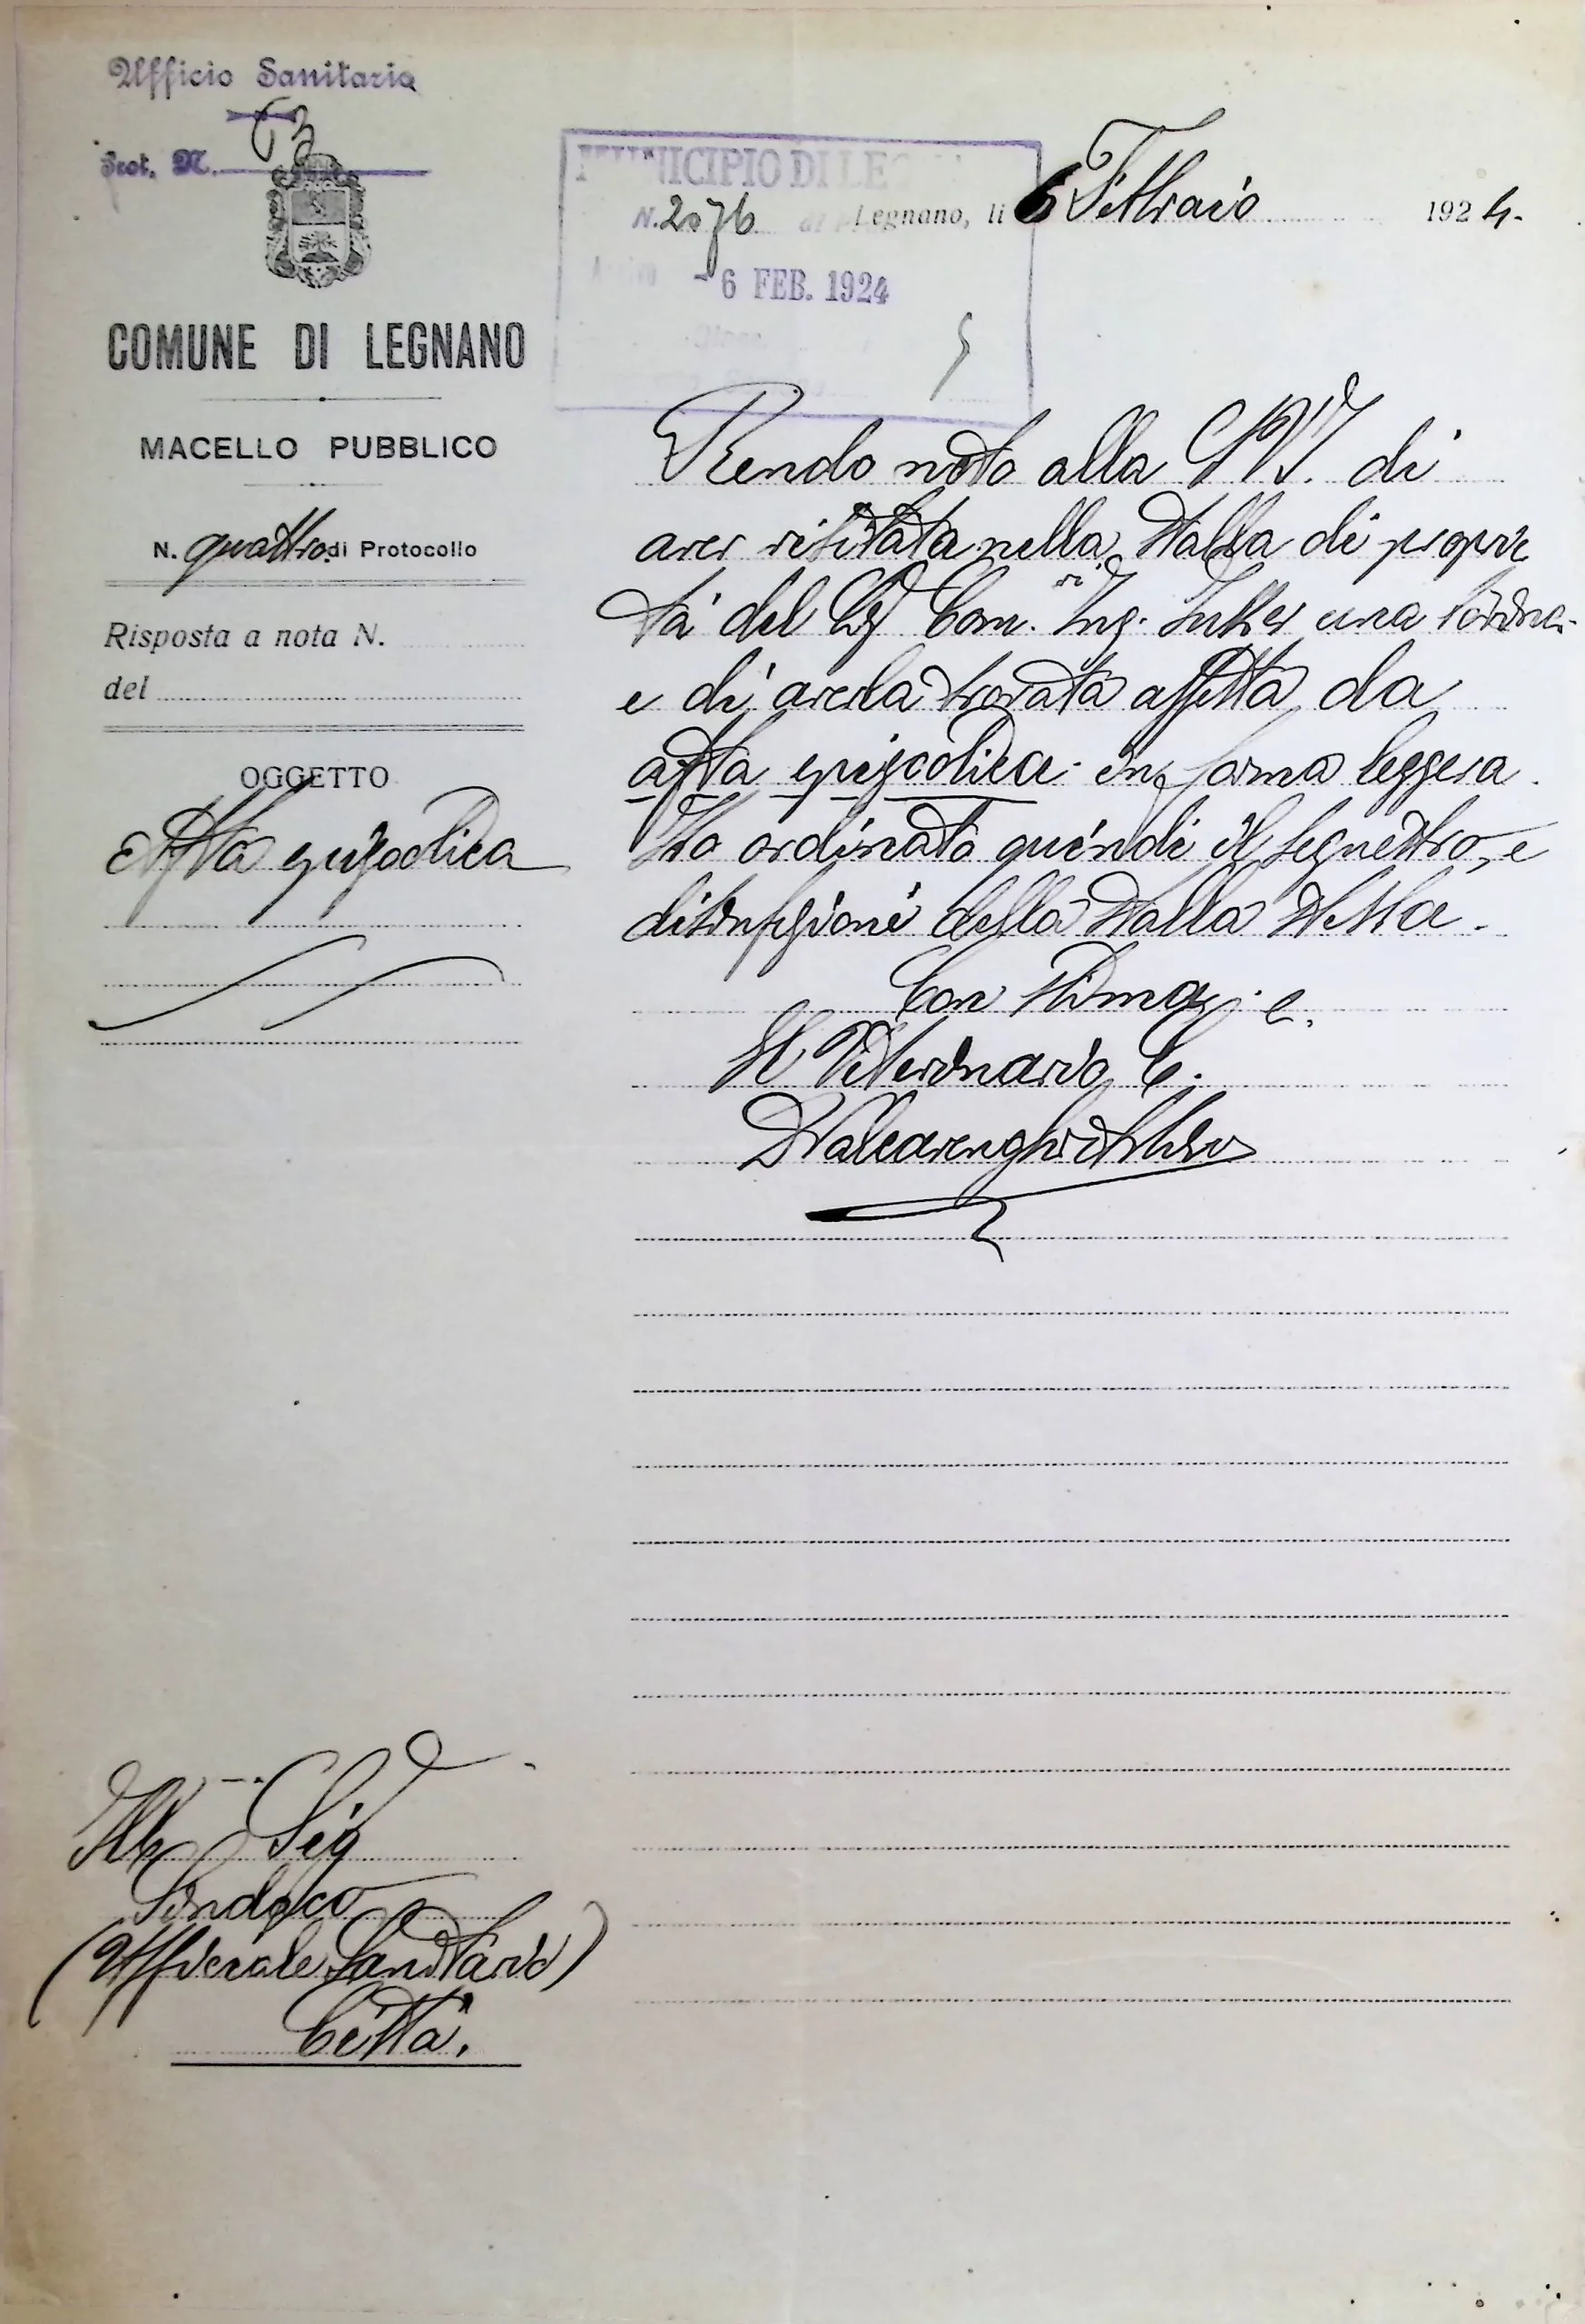 Ufficio Sanitario
Prot. N. 63
COMUNE DI LEGNANO
MACELLO PUBBLICO
N. quattro di Protocollo
Risposta a nota N.
del
OGGETTO
Afta epizootica
MUNICIPIO DI LE
N. 2076
- 6 FEB. 1924
Legnano, li 6 Febbraio 1924.
Rendo noto alla S.V.I. di
aver visitata nella stalla di proprie
tà del Sig. Com. Ing. una bovina
e di averla trovata affetta da
afta epizootica in forma leggera.
Ho ordinato quindi il sequestro, e
disinfezione della stalla stessa.
Con stima
Il Veterinario C.
Ill. Sig
Sindaco
(Ufficiale Sanitario)
Città.